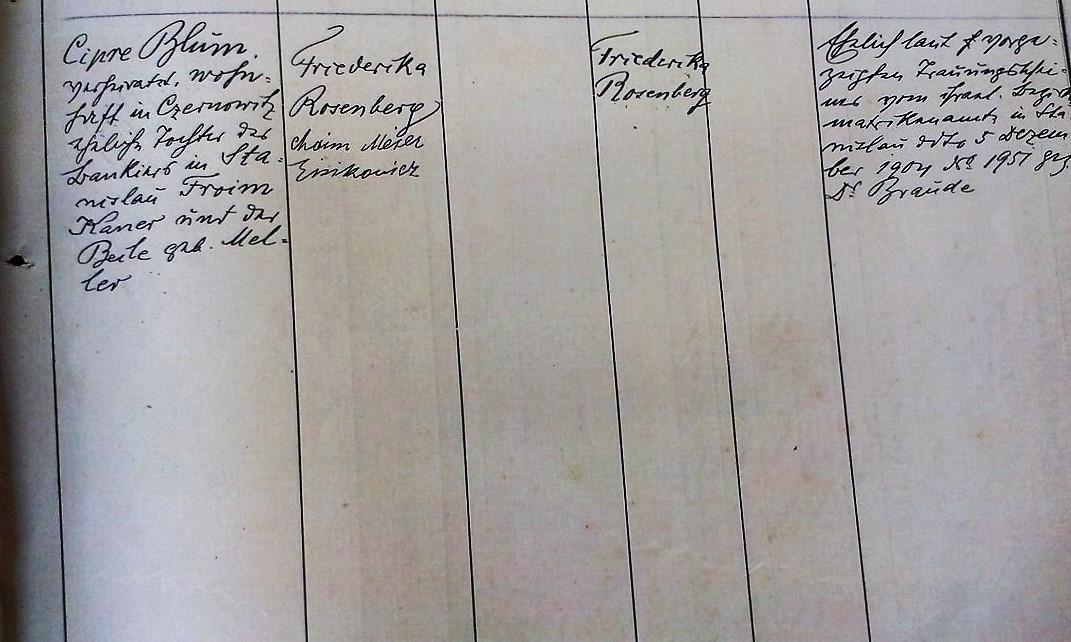 Cipre Blum,
verheiratet, wohn-
haft in Czernowitz
eheliche Tochter des
Bankiers in Sta-
nislau Froim
Kaner und der
Beile geb. Mel-
ler
Friederika
Rosenberg
Chaim Meier
Eisikowicz
Friederika
Rosenberg
Ehelich laut vorge-
zeigten Trauungsschei-
nes vom israel. Bezirks
matrikenamte in Sta
nislau ddto 5 Dezem
ber 1904 No 1951 gez.
Dr Braude